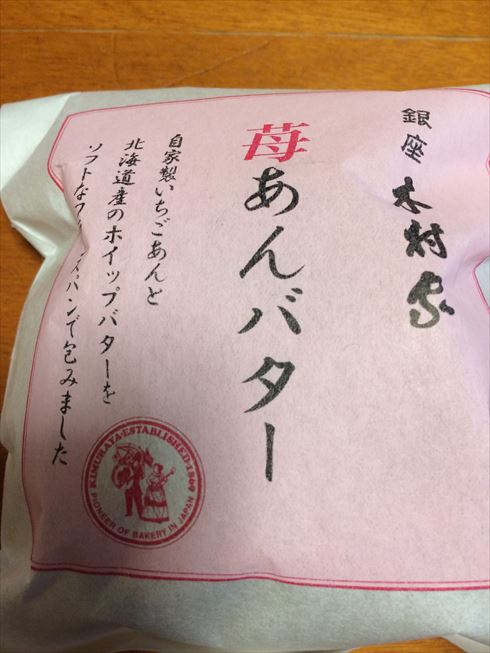 銀座 木村家
苺あんバター
自家製いちごあんと
北海道産のホイップバターを
ソフトなフランスパンで包みました
KIMURAYA・ESTABLISHED・1869
PIONEER OF BAKERY IN JAPAN